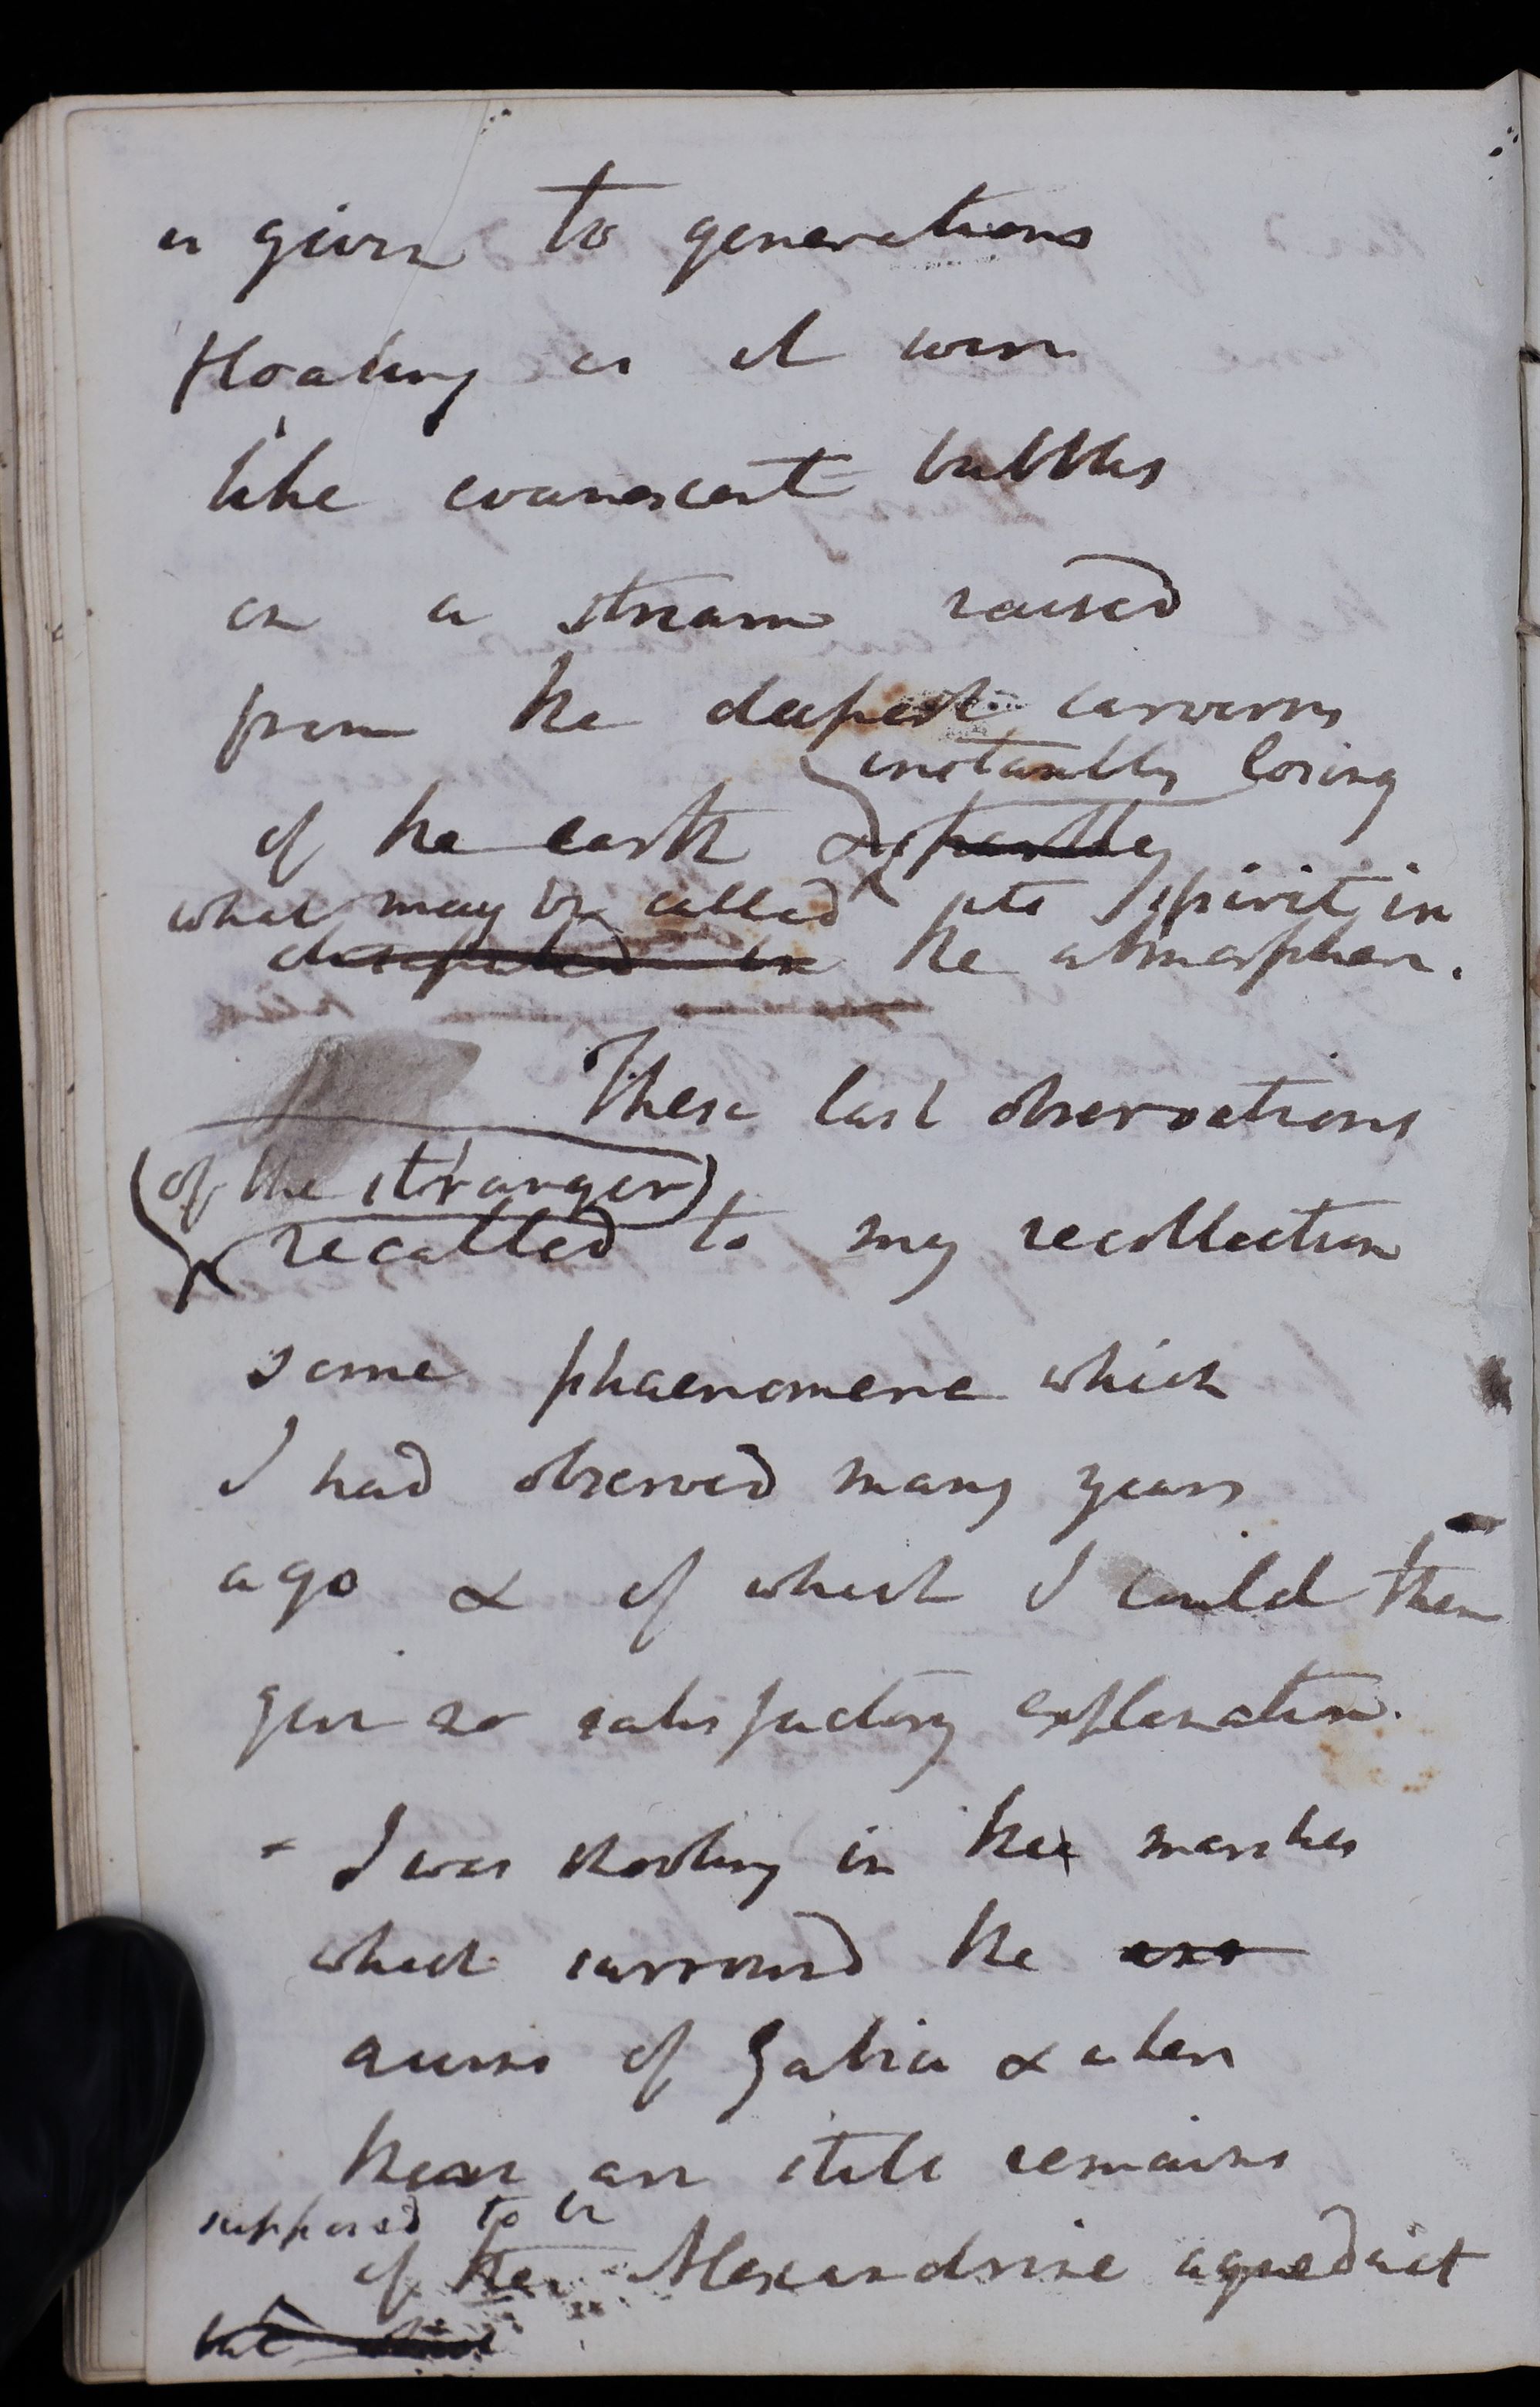 is given to generations
floating as it were
like evanescent bubbles
on a stream raised
from the deepest caverns
instantly losing
of the earth & partly
what may be called its spirit in
dissipated in the atmosphere.
These last observations
(of the stranger)
recalled to my recollection
some phaenomena which
I had observed many years
ago & of which I could then
give no satisfactory explanation.
- I was shooting in the marshes
which surround the
ruins of Gabia & where
there are still remains
supposed to be
of the Alexandrine aqueduct
but